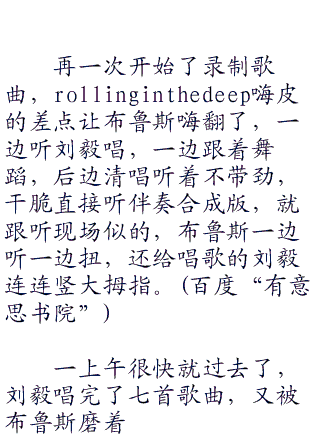 再一次开始了录制歌
曲，rollinginthedeep嗨皮
的差点让布鲁斯嗨翻了，一
边听刘毅唱，一边跟着舞
蹈，后边清唱听着不带劲，
干脆直接听伴奏合成版，就
跟听现场似的，布鲁斯一边
听一边扭，还给唱歌的刘毅
连连竖大拇指。(百度“有意
思书院”)
一上午很快就过去了，
刘毅唱完了七首歌曲，又被
布鲁斯磨着